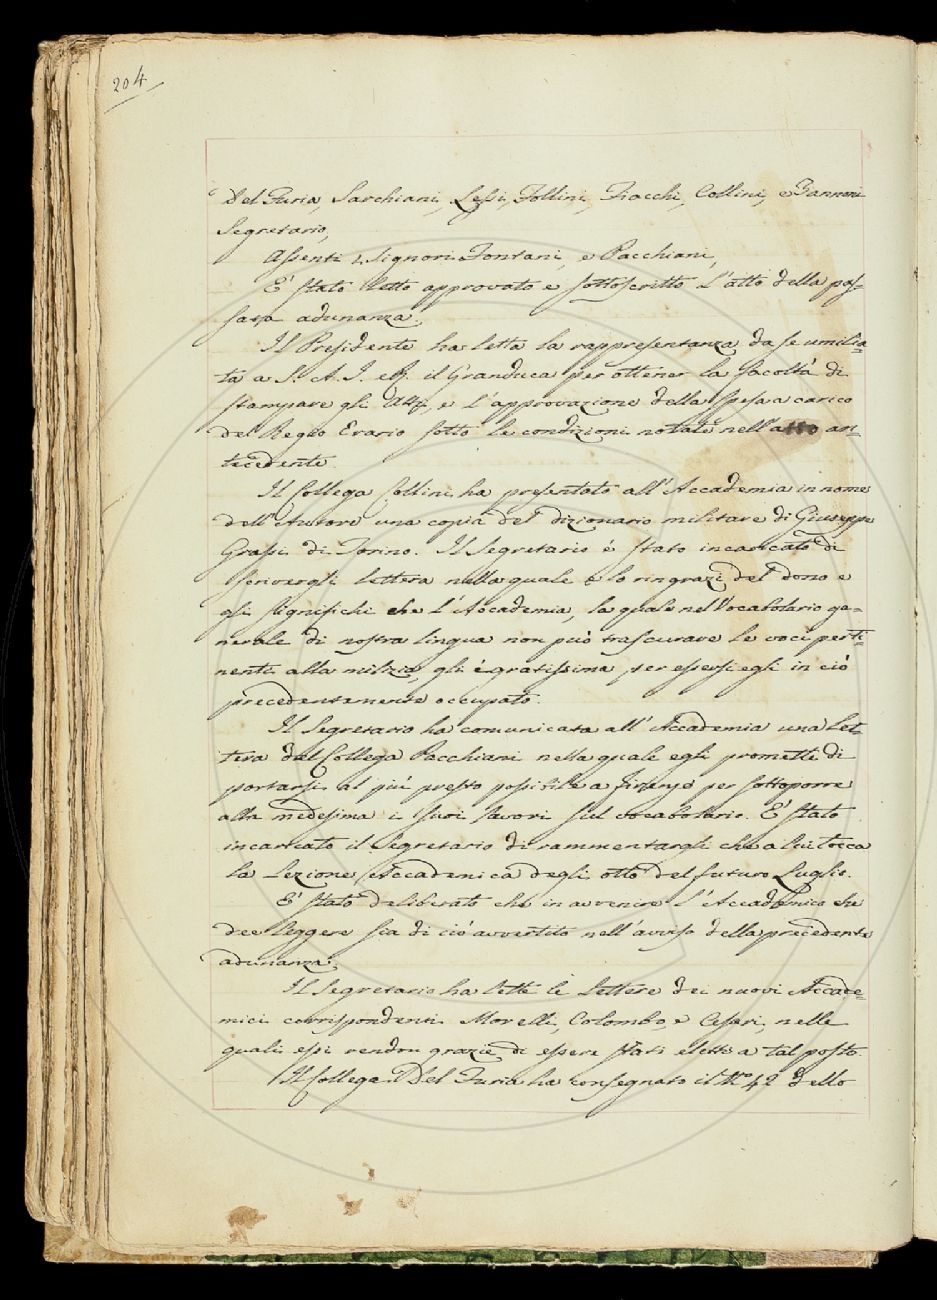 204
Del Furia, Sarchiani, Lessi, Follini, Fiacchi, Collini, e Zannoni
Segretario,
Assenti i Signori Fontani, e Pacchiani,
E' stato letto approvato e sottoscritto l'atto della pas=
sata adunanza.
Il Presidente ha letta la rappresentanza da se umilia=
ta a S. A. I. e R. il Granduca per ottener la facoltà di
stampare gli Atti, e l'approvazione della spesa a carico
del Regio Erario sotto le condizioni notate nell'atto an=
tecedente.
Il Collega Collini ha presentato all'Accademia in nome
dell'Autore una copia del dizionario militare di Giuseppe
Grassi di Torino. Il Segretario è stato incaricato di
scrivergli lettera nella quale e lo ringrazi del dono e
gli significhi che l'Accademia, la quale nel Vocabolario ge=
nerale di nostra lingua non può trascurare le voci perti=
nenti alla milizia, gli è gratissima, per essersi egli in ciò
precedentemente occupato.
Il Segretario ha comunicata all'Accademia una let=
tera del Collega Pacchiani nella quale egli promette di
portarsi al più presto possibile a Firenze per sottoporre
alla medesima i suoi lavori sul vocabolario. E' stato
incaricato il Segretario di rammentargli che a lui tocca
la Lezione Accademica degli otto del futuro Luglio.
E' stato deliberato che in avvenire l'Accademico che
dee leggere sia di ciò avvertito nell'avviso della precedente
adunanza.
Il Segretario ha lette le lettere dei nuovi Accade=
mici corrispondenti Morelli, Colombo, e Cesari, nelle
quali essi rendon grazie di essere stati eletti a tal posto.
Il Collega Del Furia ha consegnato il N.º 42 dello